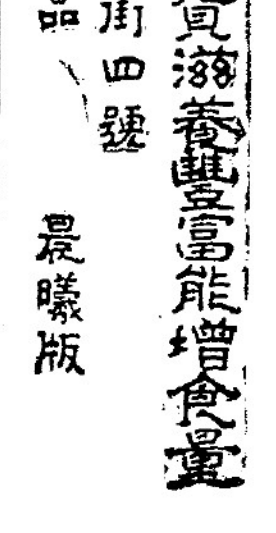 滋養豐富能增食量
街四號
品
晨曦版